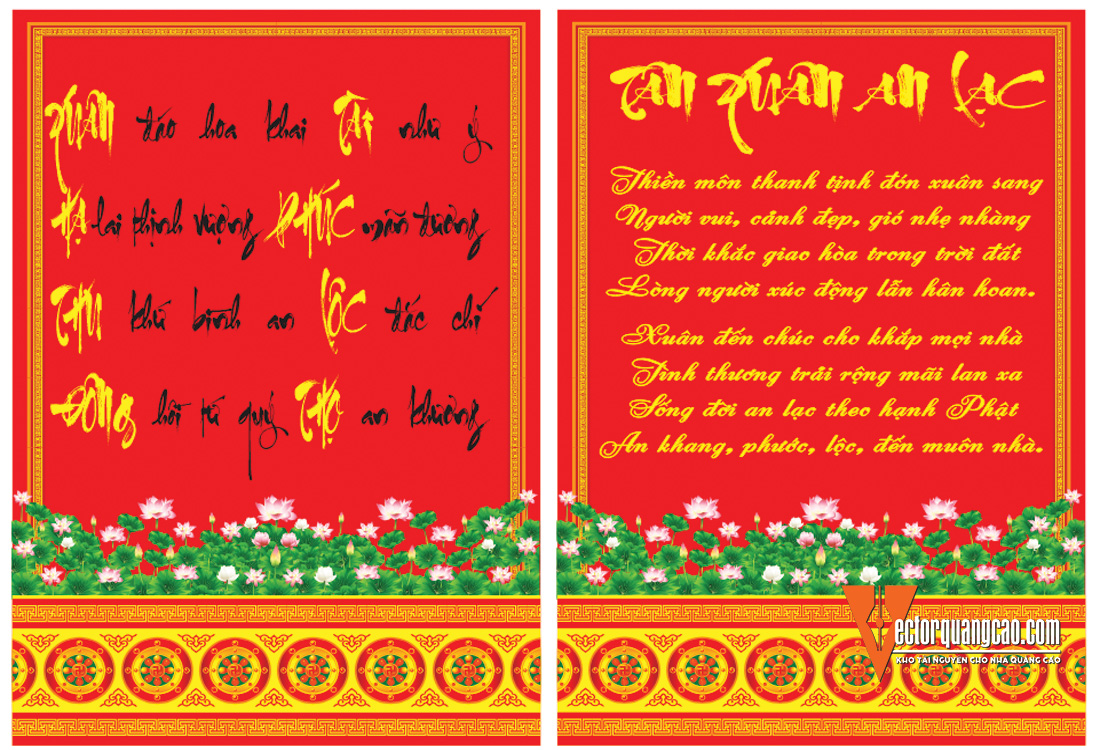 XUÂN đáo hoa khai TÀI như ý
HẠ lai thịnh vượng PHÚC mãn đường
THU khứ bình an LỘC đắc chí
ĐÔNG hồi tứ quý THỌ an khương
TÂN XUÂN AN LẠC
Thiền môn thanh tịnh đón xuân sang
Người vui, cảnh đẹp, gió nhẹ nhàng
Thời khắc giao hòa trong trời đất
Lòng người xúc động lẫn hân hoan.
Xuân đến chúc cho khắp mọi nhà
Tình thương trải rộng mãi lan xa
Sống đời an lạc theo hạnh Phật
An khang, phước, lộc, đến muôn nhà.
Vectorquangcao.com
KHO TÀI NGUYÊN CHO NHÀ QUẢNG CÁO